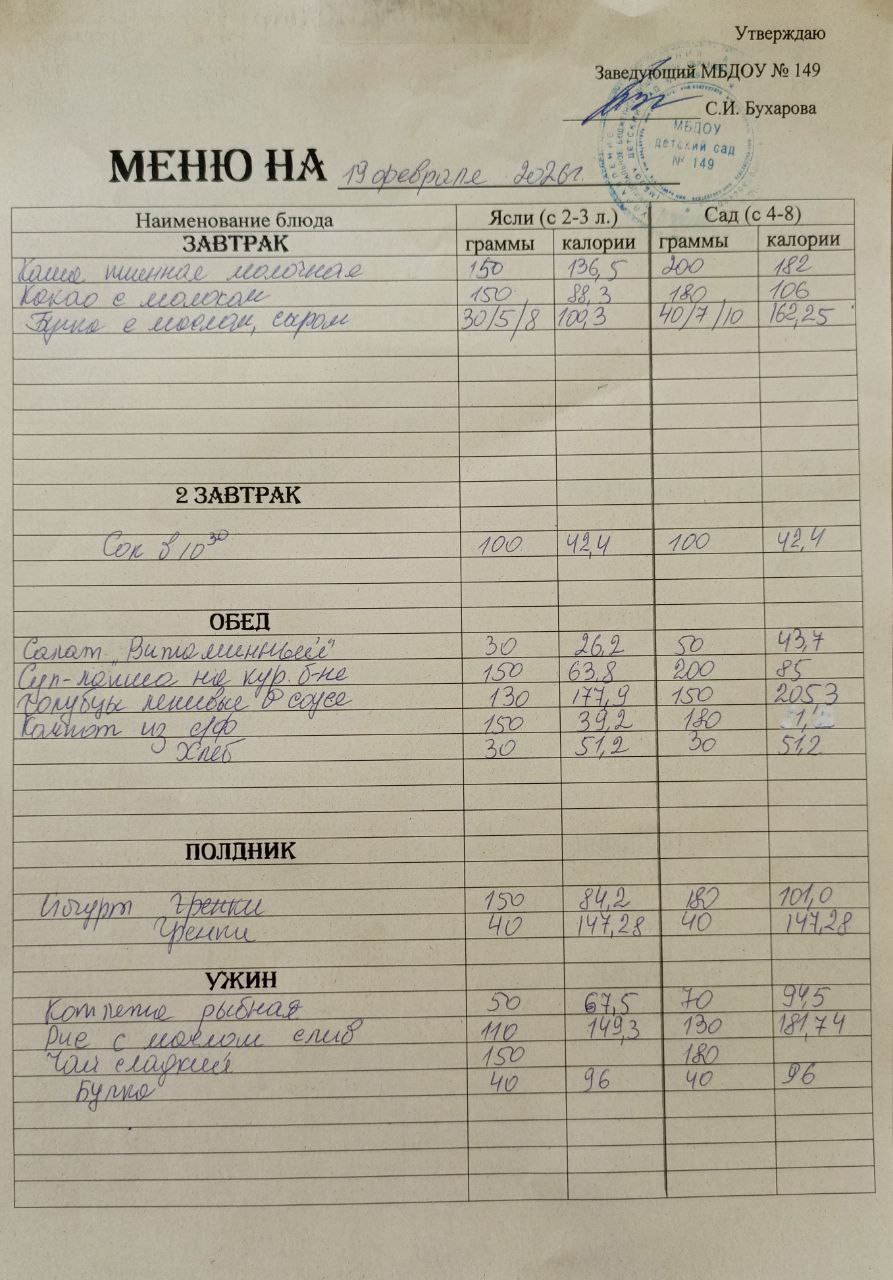 Утверждаю
Заведующий МБДОУ № 149
С.И. Бухарова
МБДОУ
детский сад
№ 149
МЕНЮ НА 19 февраля 2026г.
Наименование блюда Ясли (с 2-3 л.) Сад (с 4-8)
ЗАВТРАК граммы калории граммы калории
Каша пшенная молочная 150 136,5 200 182
Какао с молоком 150 88,3 180 106
Булка с маслом, сыром 30/5/8 100,3 40/7/10 162,25
2 ЗАВТРАК
Сок в 10 30 100 42,4 100 42,4
ОБЕД
Салат "Витаминный" 30 26,2 50 43,7
Суп-лапша на кур. б-не 150 63,8 200 85
Голубцы ленивые в соусе 130 177,9 150 205,3
Компот из с/ф 150 39,2 180
Хлеб 30 51,2 30 51,2
ПОЛДНИК
Йогурт Гренки 150 84,2 180 101,0
Гренки 40 147,28 40 147,28
УЖИН
Котлета рыбная 50 67,5 70 94,5
Рис с маслом слив 110 149,3 130 181,74
Чай сладкий 150 180
Булка 40 96 40 96